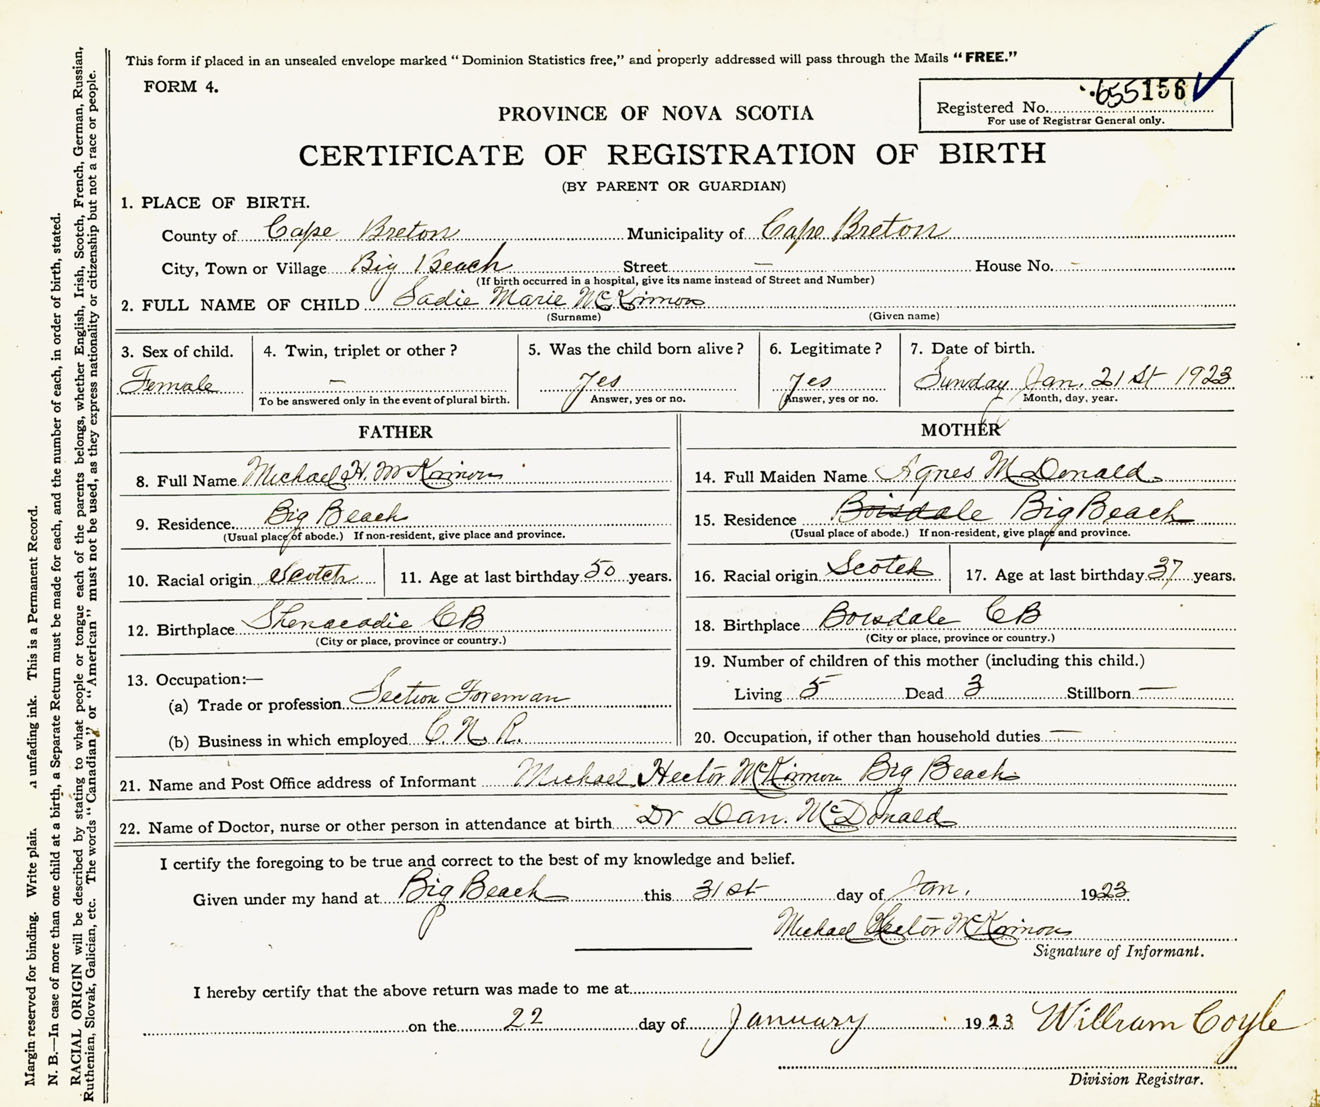 This form if placed in an unsealed envelope marked "Dominion Statistics free," and properly addressed will pass through the Mails "FREE."
FORM 4.
Registered No. 655156
For use of Registrar General only.
PROVINCE OF NOVA SCOTIA
CERTIFICATE OF REGISTRATION OF BIRTH
(BY PARENT OR GUARDIAN)
1. PLACE OF BIRTH.
County of Cape Breton Municipality of Cape Breton
City, Town or Village Big Beach Street — House No. -
(If birth occurred in a hospital, give its name instead of Street and Number)
2. FULL NAME OF CHILD Sadie Marie McKinnon
(Surname) (Given name)
3. Sex of child. 4. Twin, triplet or other? 5. Was the child born alive? 6. Legitimate? 7. Date of birth.
Female — Yes Yes Sunday Jan. 21st 1923
To be answered only in the event of plural birth. Answer, yes or no. Answer, yes or no. Month, day, year.
FATHER
8. Full Name Michael H. McKinnon
9. Residence Big Beach
(Usual place of abode.) If non-resident, give place and province.
10. Racial origin Scotch 11. Age at last birthday 50 years.
12. Birthplace Shenacadie CB
(City or place, province or country.)
13. Occupation:—
(a) Trade or profession Section Foreman
(b) Business in which employed C. N. R.
MOTHER
14. Full Maiden Name Agnes McDonald
15. Residence Boisdale Big Beach
(Usual place of abode.) If non-resident, give place and province.
16. Racial origin Scotch 17. Age at last birthday 37 years.
18. Birthplace Boisdale CB
(City or place, province or country.)
19. Number of children of this mother (including this child.)
Living 5 Dead 3 Stillborn —
20. Occupation, if other than household duties —
21. Name and Post Office address of Informant Michael Hector McKinnon Big Beach
22. Name of Doctor, nurse or other person in attendance at birth Dr Dan. McDonald
I certify the foregoing to be true and correct to the best of my knowledge and belief.
Given under my hand at Big Beach this 31st day of Jan. 1923
Michael Hector McKinnon
Signature of Informant.
I hereby certify that the above return was made to me at
on the 22 day of January 1923 William Coyle
Division Registrar.
Margin reserved for binding. Write plain. a unfading ink. This is a Permanent Record.
N. B.—In case of more than one child at a birth, a Separate Return must be made for each, and the number of each, in order of birth, stated.
RACIAL ORIGIN will be described by stating to what people or tongue each of the parents belongs, whether English, Irish, Scotch, French, German, Russian,
Ruthenian, Slovak, Galician, etc. The words "Canadian" or "American" must not be used, as they express nationality or citizenship but not a race or people.